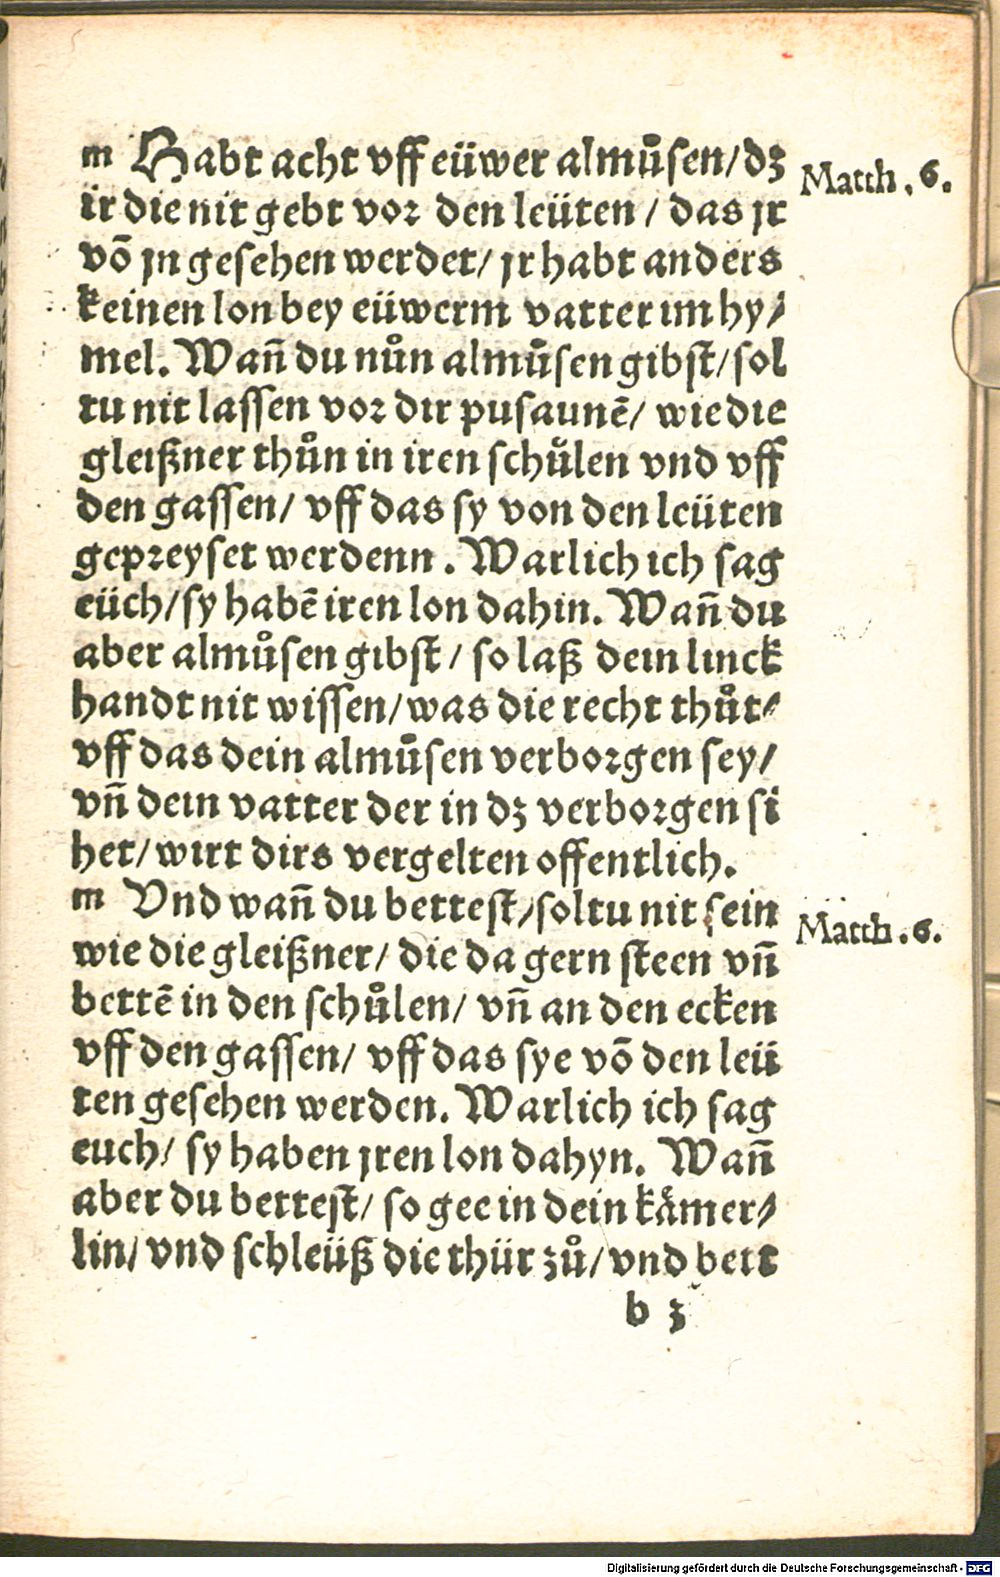 m Habt acht vff eüwer almůsen/dz
Matth. 6.
ir die nit gebt vor den leüten / das jr
võ jn gesehen werdet/ jr habt anders
keinen lon bey eüwerm vatter im hy⸗
mel. Wañ du nůn almůsen gibst/sol
tu nit lassen vor dir pusaunẽ/ wie die
gleißner thůn in iren schůlen vnd vff
den gassen/ vff das sy von den leüten
gepreyset werdenn. Warlich ich sag
eüch/sy habẽ iren lon dahin. Wañ du
aber almůsen gibst/ so laß dein linck
handt nit wissen/was die recht thůt⸗
vff das dein almůsen verborgen sey/
vñ dein vatter der in dz verborgen si
het/wirt dirs vergelten offentlich.
m Vnd wañ du bettest/soltu nit sein
Matth. 6.
wie die gleißner/ die da gern steen vñ
bettẽ in den schůlen/ vñ an den ecken
vff den gassen/ vff das sye võ den leü
ten gesehen werden. Warlich ich sag
euch/ sy haben jren lon dahyn. Wañ
aber du bettest/ so gee in dein kåmer⸗
lin/ vnd schleüß die thür zů/ vnd bett
b 3
Digitalisierung gefördert durch die Deutsche Forschungsgemeinschaft - DFG